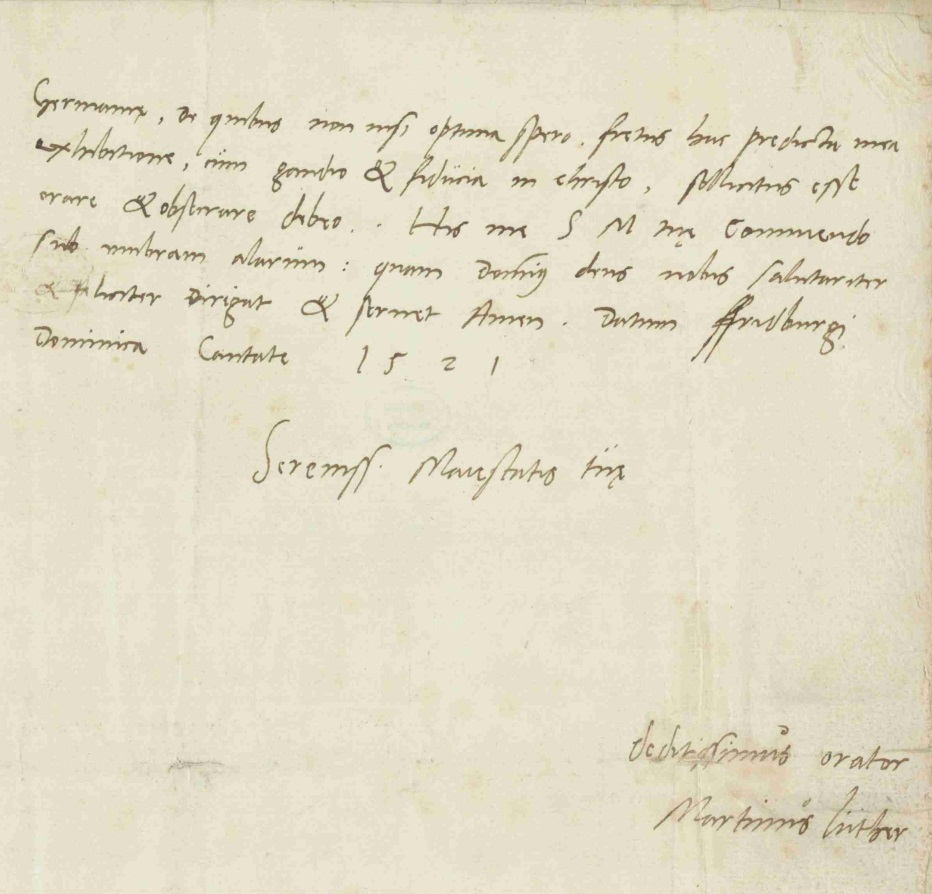 Germanię, de quibus non nisi optima spero. fretus hac predicta mea
exhibitione, cum gaudio & fiducia in christo, sollicitus esse
orare & obsecrare debeo. . His me S M tuę Commendo
sub umbram alarum : quam Dominus deus nobis salutariter
& feliciter dirigat & servet Amen. Datum ffridburgi
Dominica Cantate 1521
Sereniss. Maiestatis tuę
deditissimus orator
Martinus Luther